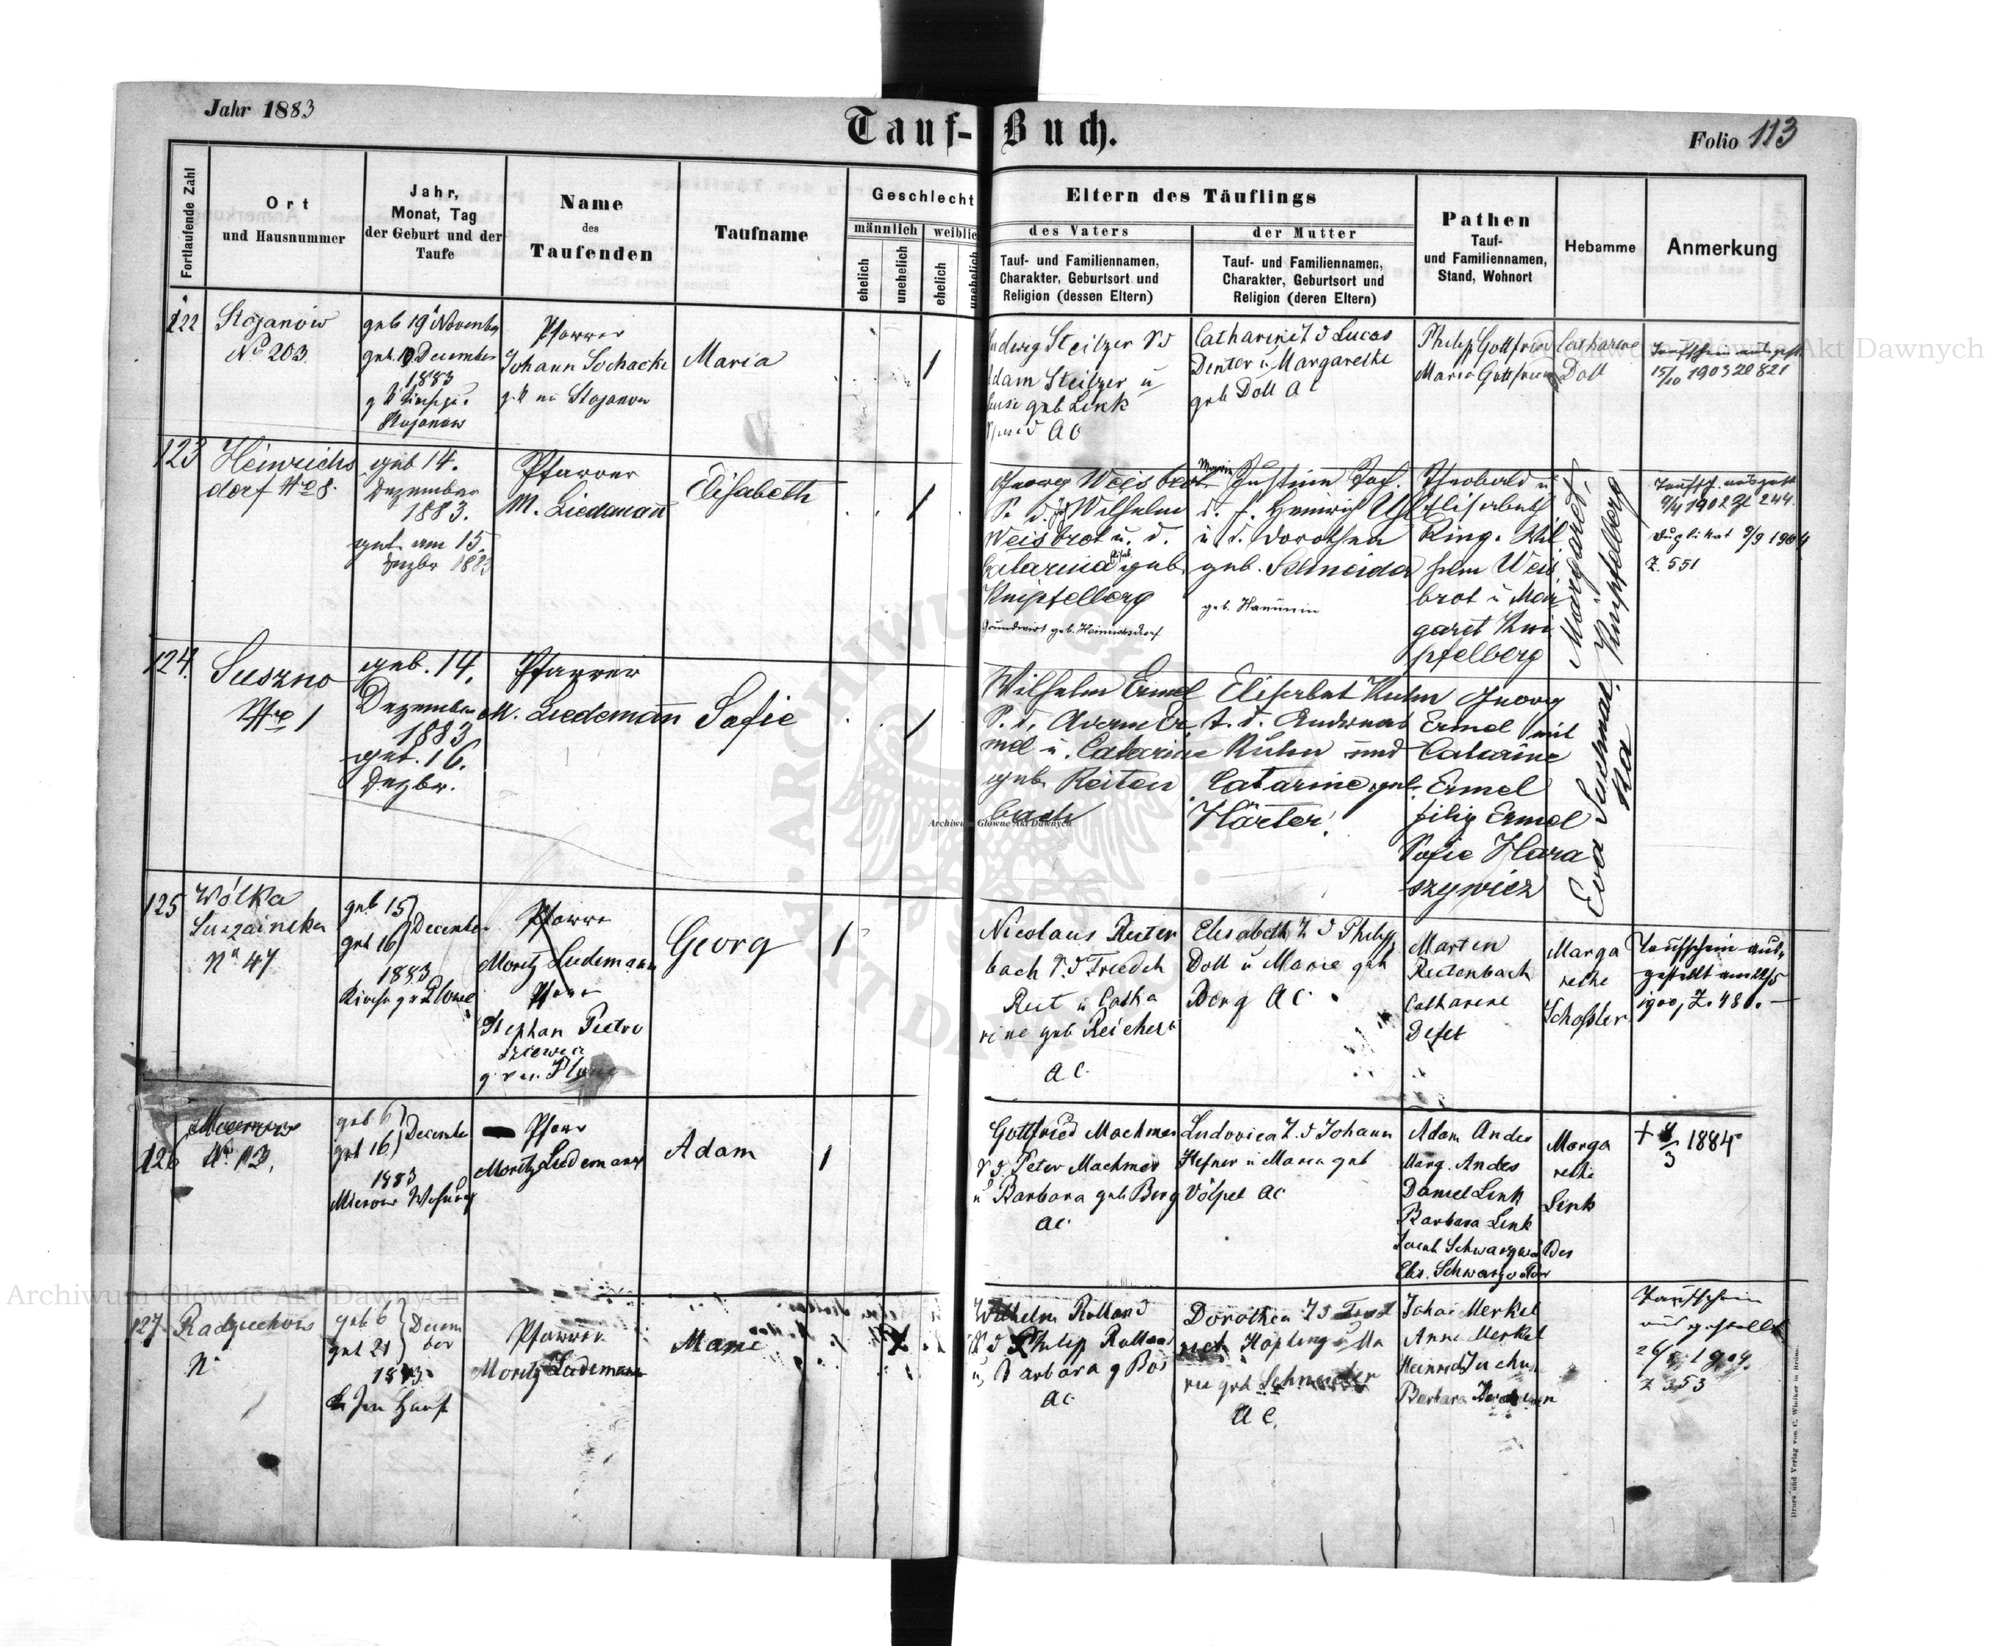 Jahr 1883
Tauf-Buch.
Folio 113
Fortlaufende Zahl
Ort
und Hausnummer
Jahr,
Monat, Tag
der Geburt und der
Taufe
Name
des
Taufenden
Taufname
Geschlecht
männlich
weiblich
ehelich
unehelich
ehelich
unehelich
Eltern des Täuflings
des Vaters
Tauf- und Familiennamen,
Charakter, Geburtsort und
Religion (dessen Eltern)
der Mutter
Tauf- und Familiennamen,
Charakter, Geburtsort und
Religion (deren Eltern)
Pathen
Tauf-
und Familiennamen,
Stand, Wohnort
Hebamme
Anmerkung
122
Stojanow
No 203.
geb 19 November
get. 10 December
1883
Stojanow
Pfarrer
Johann Sochacki
Stojanow
Maria
1
Ludwig Steitzer
Adam Steitzer u
geb Link
AC
Catharine T d Lucas
Denter u Margarethe
geb Doll AC
Philip Gottfried
Maria Gottfried
Catharine
Doll
Taufschein ausgest.
15/10 1903 Zl 821
123
Heinrichs
dorf Nro 8.
geb 14.
Dezember
1883.
get. am 15.
Dezbr 1883
Pfarrer
M. Liedemann
Elisabeth
1
Georg Weisbrot
S. d. Wilhelm
Weisbrot u. d.
Katarina geb.
Knipfelberg
Grundwirt geb. Heinrichsdorf
Maria
Justine
d. Heinrich
u. d. Dorothea
geb. Schneider
Theobald u
Elisabeth
Ring. Wil
helm Weis
brot u Mar
garet Kni
pfelberg
Margaret
Knipfelberg
Taufsch. ausgest.
9/4 1902 Zl 244.
Duplikat 9/9 1904
Z. 551
124.
Suszno
Nro 1
geb. 14.
Dezember
1883
get. 16.
Dezbr.
Pfarrer
M. Liedemann
Sofie
1
Wilhelm Ermel
S. d. Adam Er
mel u. Catarine
geb. Reiten
bach
Elisabet Kuhn
t. d. Andreas
Kuhn und
Catarine geb.
Härter.
Georg
Ermel mit
Catarine
Ermel
filip Ermel
Sofie Hara
szywicz
Eva Suchnac
Ka
125
Wólka
Suszainska
No 47
geb 15
get 16
December
1883
Pfarrer
Moritz Liedemann
Pfarr
Stephan Pietro
Georg
1
Nicolaus Reiter
bach S d Friedch
Reit u Catha
rine geb Reichert
AC.
Elisabeth T d Philip
Doll u Marie geb
Berg AC.
Martin
Reitenbach
Catharine
Marga
rethe
Schossler
Taufschein aus,
gestellt am
1900, Z. 480.
126
No 13.
geb 6
get 16
December
1883
Mierow
Pfarr
Moritz Liedemann
Adam
1
Gottfried Machmer
S d Peter Machmer
u Barbara geb Berg
AC.
Ludovica T. d Johann
Hefner u Maria geb
Völpel AC
Adam Andes
Marg. Andes
Daniel Link
Barbara Link
Jacob Schwarzwälder
Elis. Schwarzwälder
Marga
rethe
Link
+ 8/3 1884
127
Radziechow
N
geb 6
get 21
Decem
ber
1883.
Pfarrer
Moritz Liedemann
Marie
Wilhelm Rolland
S d Philip Rolland
u Barbara g Bos
AC
Dorothea T d
u Ma
rie geb Schneider
AC.
Johan Merkel
Anna Merkel
Heinrich
Barbara
Taufschein
ausgestellt
1909.
Z 353
Druck und Verlag von C. Winiker in Brünn.
Archiwum Główne Akt Dawnych
Archiwum Główne Akt Dawnych
Archiwum Główne Akt Dawnych
ARCHIWUM GŁÓWNE AKT DAWNYCH